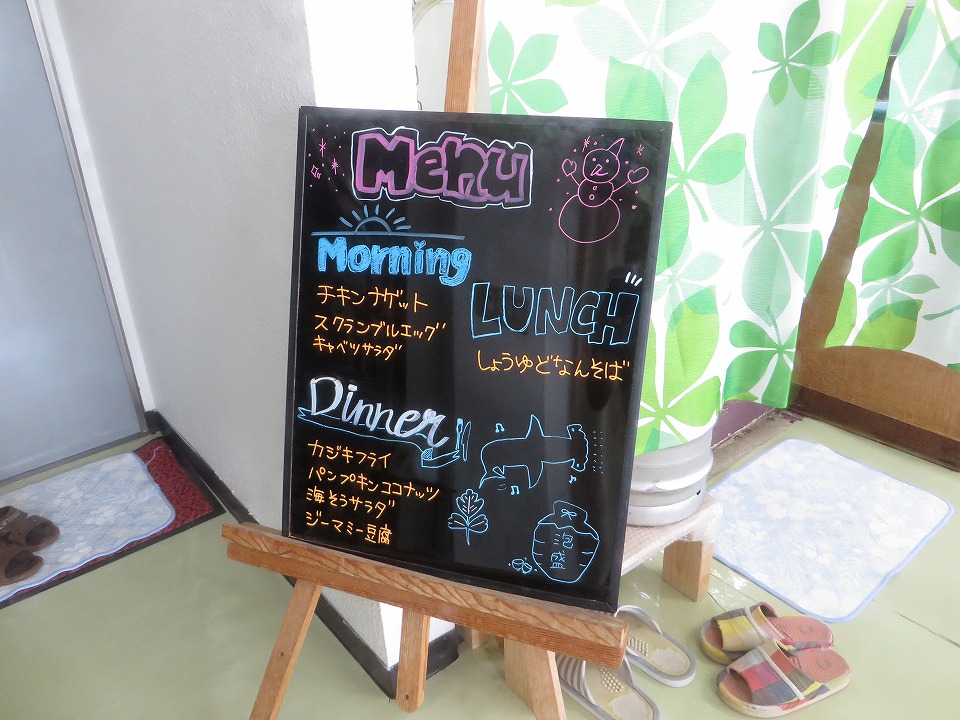 Menu
Morning
チキンナゲット
スクランブルエッグ
キャベツサラダ
LUNCH
しょうゆどなんそば
Dinner
カジキフライ
パンプキンココナッツ
海そうサラダ
ジーマミー豆腐
泡盛